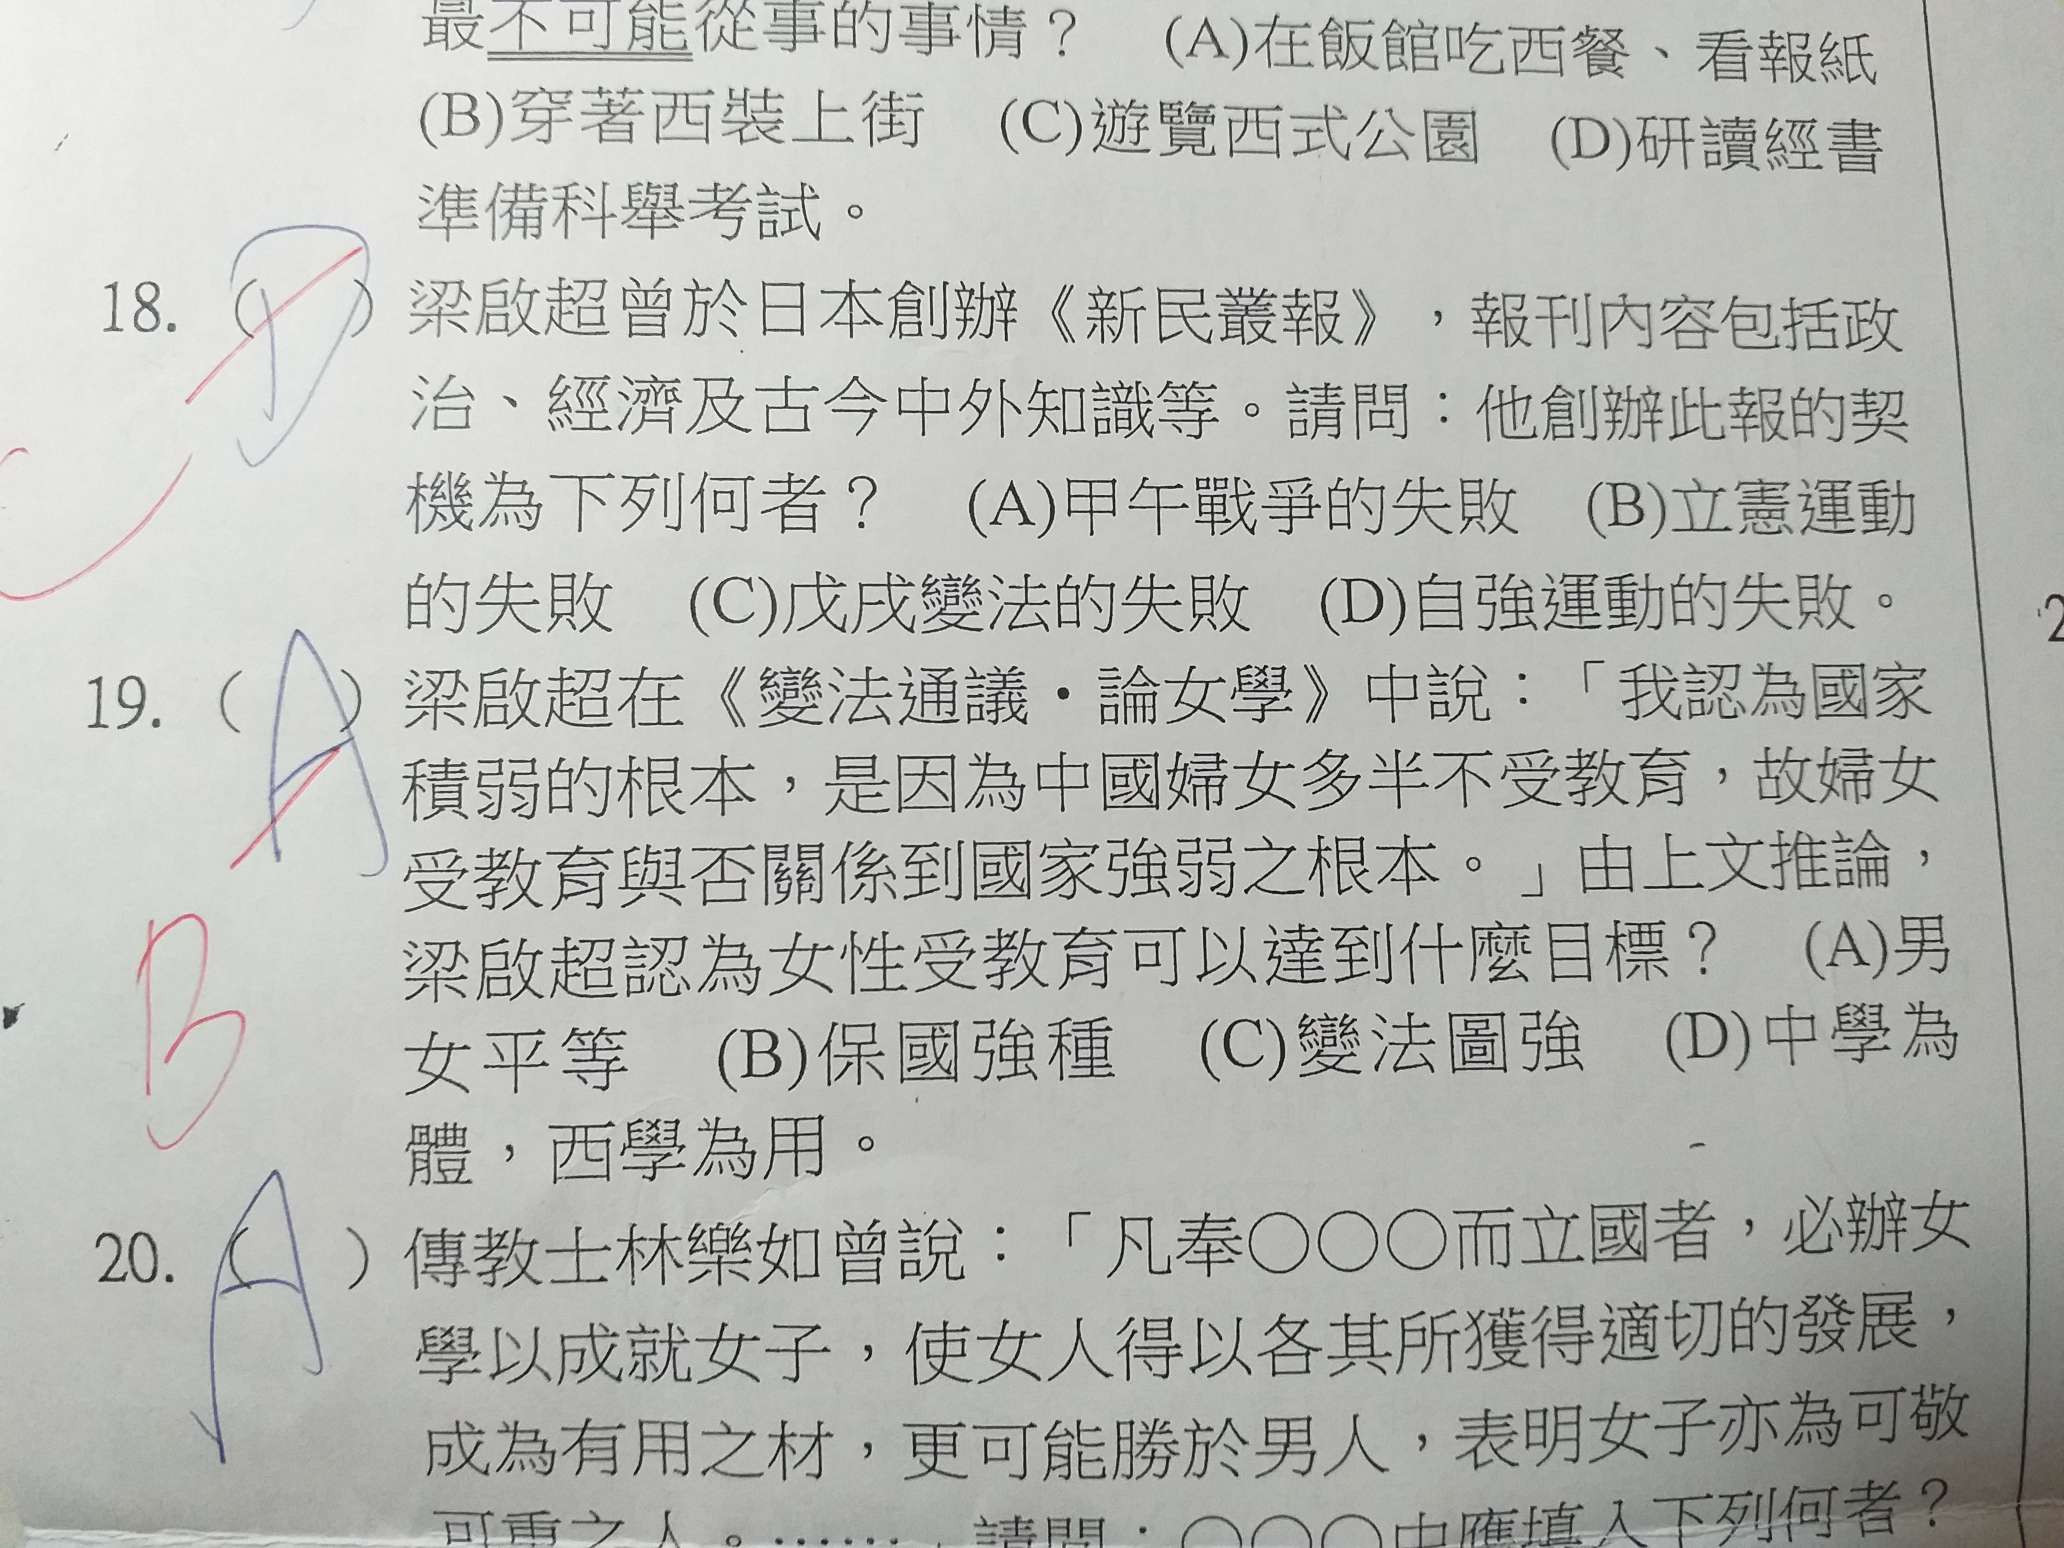 最不可能從事的事情？ (A)在飯館吃西餐、看報紙
(B)穿著西裝上街 (C)遊覽西式公園 (D)研讀經書
準備科舉考試。
18. (D) 梁啟超曾於日本創辦《新民叢報》，報刊內容包括政
治、經濟及古今中外知識等。請問：他創辦此報的契
機為下列何者？ (A)甲午戰爭的失敗 (B)立憲運動
C
的失敗 (C)戊戌變法的失敗 (D)自強運動的失敗。
19. (A) 梁啟超在《變法通議・論女學》中說：「我認為國家
積弱的根本，是因為中國婦女多半不受教育，故婦女
受教育與否關係到國家強弱之根本。」由上文推論，
梁啟超認為女性受教育可以達到什麼目標？ (A)男
B
女平等 (B)保國強種 (C)變法圖強 (D)中學為
體，西學為用。
20. (A) 傳教士林樂如曾說：「凡奉○○○而立國者，必辦女
學以成就女子，使女人得以各其所獲得適切的發展，
成為有用之材，更可能勝於男人，表明女子亦為可敬
可重之人。……」請問：○○○中應填入下列何者？
2